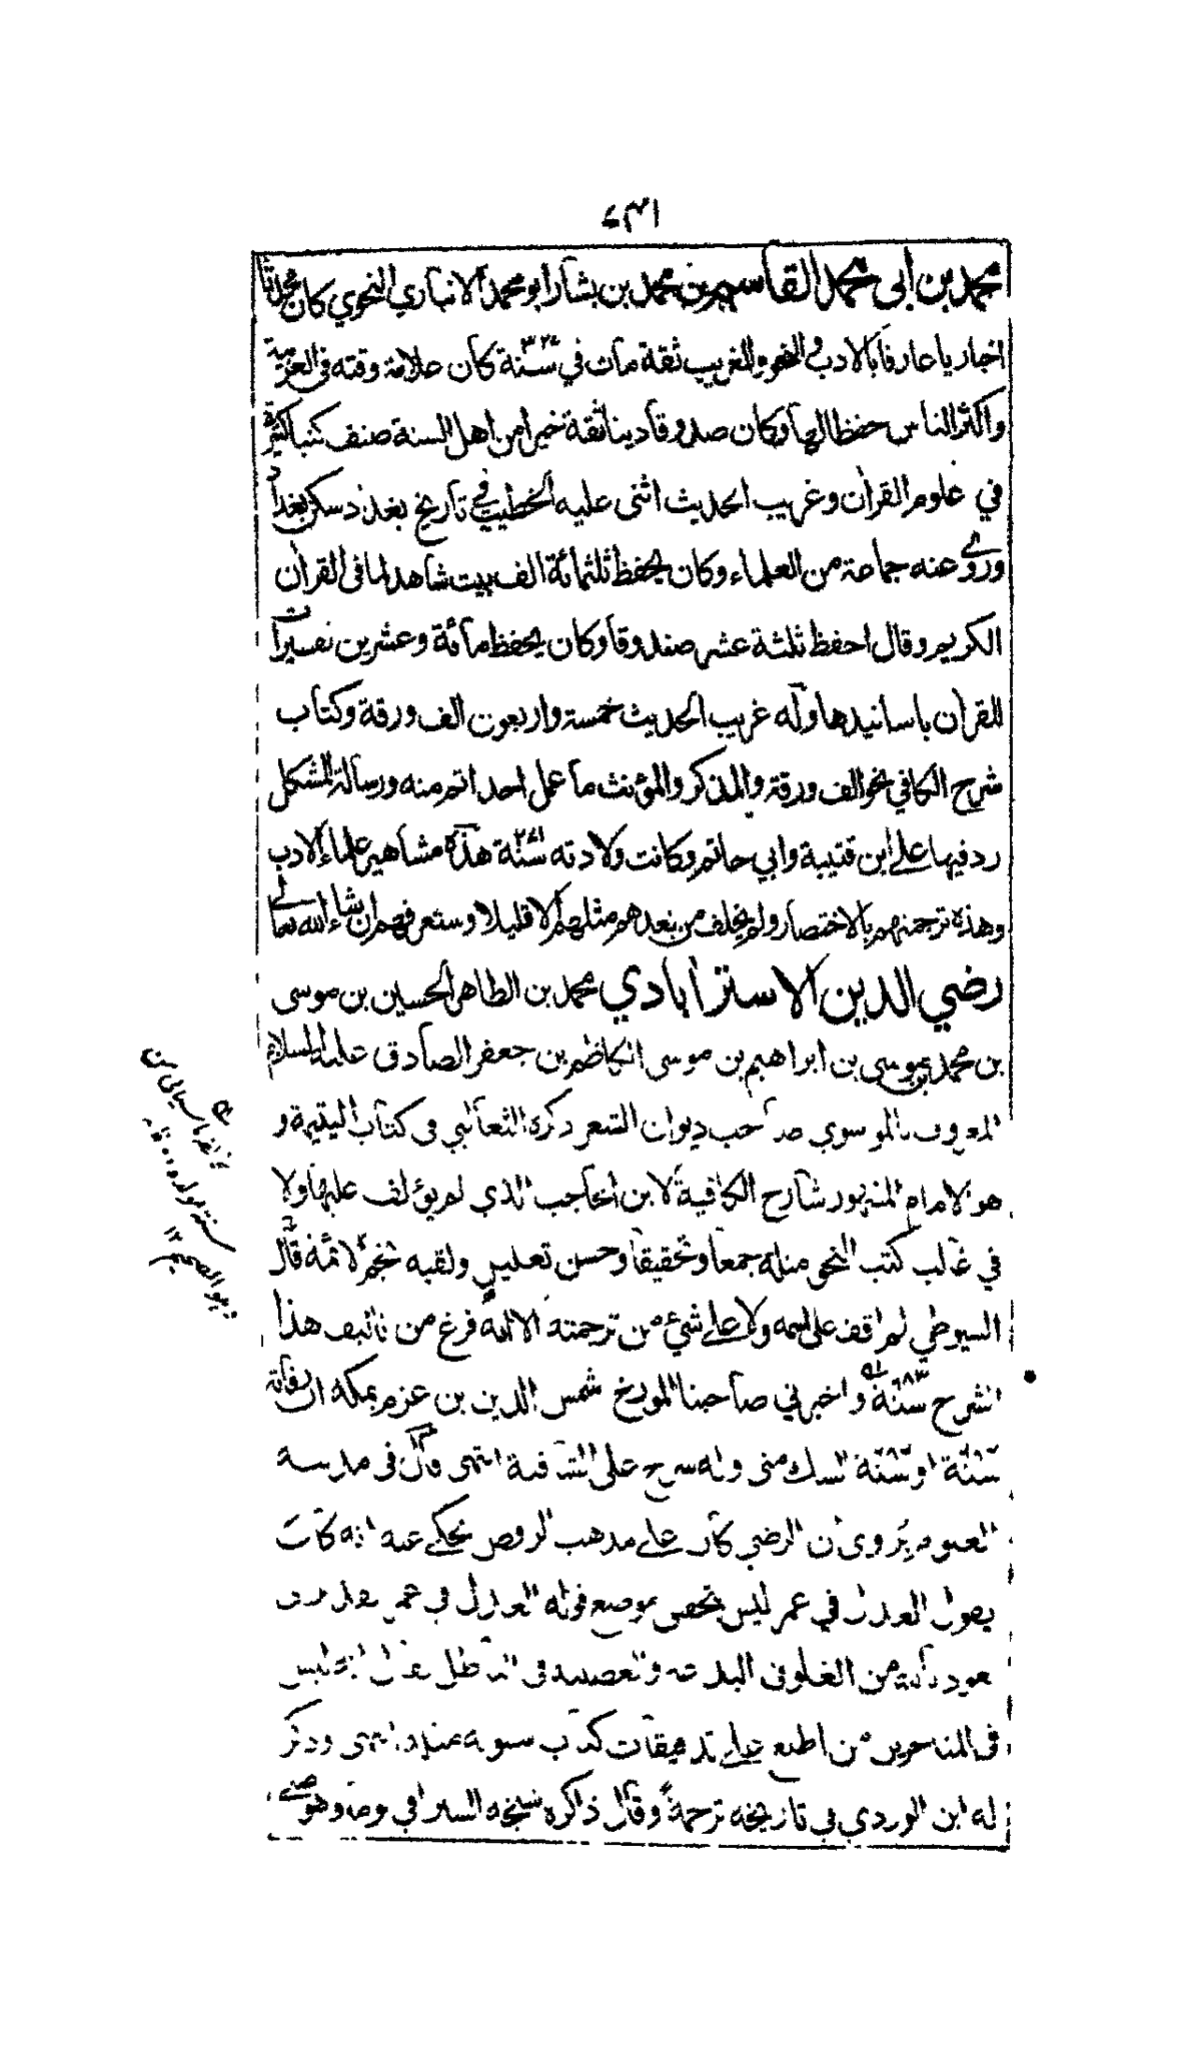 محمد بن أبى محمد القاسم بن محمد بن بشار أبو محمد الانباري النحوي كان محدثا
اخباريا عارفا بالادب والنحو والغريب ثقة مات في سنة ٣٢٨ كان علامة وقته فى العربية
واكثر الناس حفظا لها وكان صدوقا دينا ثقة خيرا من اهل السنة صنف كتبا كثيرة
في علوم القرأن وغريب الحديث اثنى عليه الخطيب في تاريخ بغداد سكن بغداد
وروى عنه جماعة من العلماء وكان يحفظ ثلثمائة الف بيت شاهدا لما فى القرأن
الكريم وقال احفظ ثلثة عشر صندوقا وكان يحفظ مائة وعشرين تفسيرات
للقرأن باسانيدها وله غريب الحديث خمسة واربعون الف ورقة وكتاب
شرح الكافي نحو الف ورقة والمذكر والمؤنث ما عمل احد اتم منه ورسالة المشكل
رد فيها على ابن قتيبة وابي حاتم وكانت ولادته سنة ٢٧١ هذه مشاهير علماء الادب
وهذه ترجمتهم بالاختصار ولم يخلف من بعدهم مثلهم الا قليلا وستعرفهم ان شاء الله تعالى
رضي الدين الاسترأبادي محمد بن الطاهر الحسين بن موسى
بن محمد بن موسى بن ابراهيم بن موسى الكاظم بن جعفر الصادق عليه السلام
المعروف بالموسوي صاحب ديوان الشعر ذكره الثعالبي فى كتاب اليتيمة و
هو الامام المشهور شارح الكافية لابن الحاجب الذي لم يؤلف عليها ولا
في غالب كتب النحو مثله جمعا وتحقيقا وحسن تعليل ولقبه نجم الائمة قال
السيوطي لم اقف على اسمه ولا على شئ من ترجمته الا انه فرغ من تاليف هذا
الشرح سنة ٦٨٣ واخبرني صاحبنا المورخ شمس الدين بن عزم بمكة ان وفاته
سنة او سنة الشك منى وله شرح على الشافية انتهى قال فى مدينة
العلوم يروى ان الرضي كان على مذهب الرفض يحكى عنه انه كان
يقول العدل في عمر ليس بتحقيقي موضع قوله العدل في عمر
من الغلو فى البدعة والعصبية فى الباطل
فى المتاخرين من اطلع على تدقيقات كتاب سيبويه مثله انتهى وذكر
له ابن الوردي في تاريخه ترجمة وقال ذاكره شيخه السيرافي يوما وهو صبي